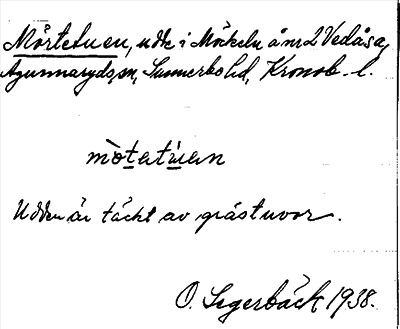 Mörtetuen, udde i Möckeln å nr 2 Vedåsa,
Agunnaryds sn, Sunnerbo hd, Kronob. l.
mòtatùan
Udden är täckt av grästuvor.
O. Segerbäck 1938.